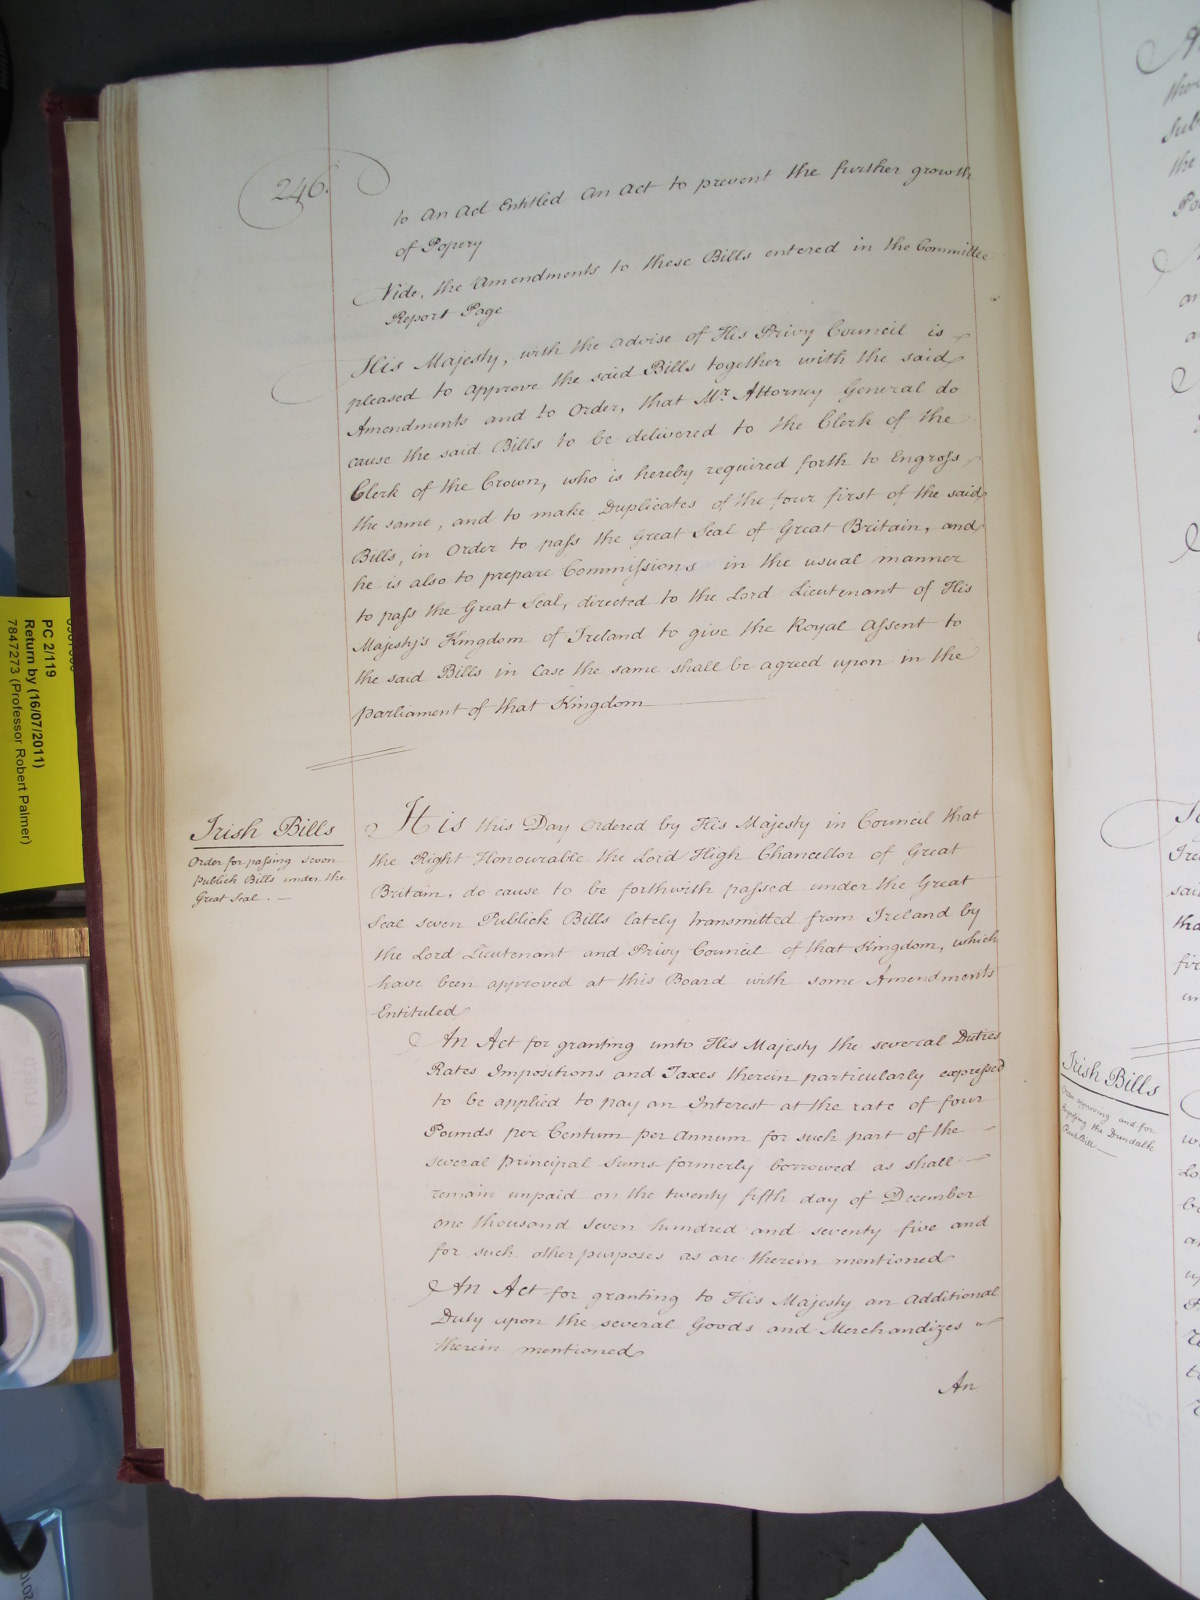 246.
to an Act Entitled an Act to prevent the further growth
of Popery
Vide, the Amendments to these Bills entered in the Committee
Report Page
His Majesty, with the advise of His Privy Council is
pleased to approve the said Bills together with the said
Amendments and to Order, that Mr. Attorney General do
cause the said Bills to be delivered to the Clerk of the
Clerk of the Crown, who is hereby required forth to Engross
the same, and to make Duplicates of the four first of the said
Bills, in Order to pass the Great Seal of Great Britain, and
he is also to prepare Commissions in the usual manner
to pass the Great Seal, directed to the Lord Lieutenant of His
Majesty's Kingdom of Ireland to give the Royal Assent to
the said Bills in Case the same shall be agreed upon in the
parliament of that Kingdom
Irish Bills
Order for passing seven
Publick Bills under the
Great Seal.
It is this Day Ordered by His Majesty in Council that
the Right Honourable the Lord High Chancellor of Great
Britain, do cause to be forthwith passed under the Great
Seal seven Publick Bills lately transmitted from Ireland by
the Lord Lieutenant and Privy Council of that Kingdom, which
have been approved at this Board with some Amendments
Entituled
An Act for granting unto His Majesty the several Duties
Rates Impositions and Taxes therein particularly expressed
to be applied to pay an Interest at the rate of four
Pounds per Centum per annum for such part of the
several principal Sums formerly borrowed as shall
remain unpaid on the twenty fifth day of December
one thousand seven hundred and seventy five and
for such other purposes as are therein mentioned
An Act for granting to His Majesty an additional
Duty upon the several Goods and Merchandizes
therein mentioned
An
PC 2/119
Return by (16/07/2011)
7847273 (Professor Robert Palmer)
Irish Bills